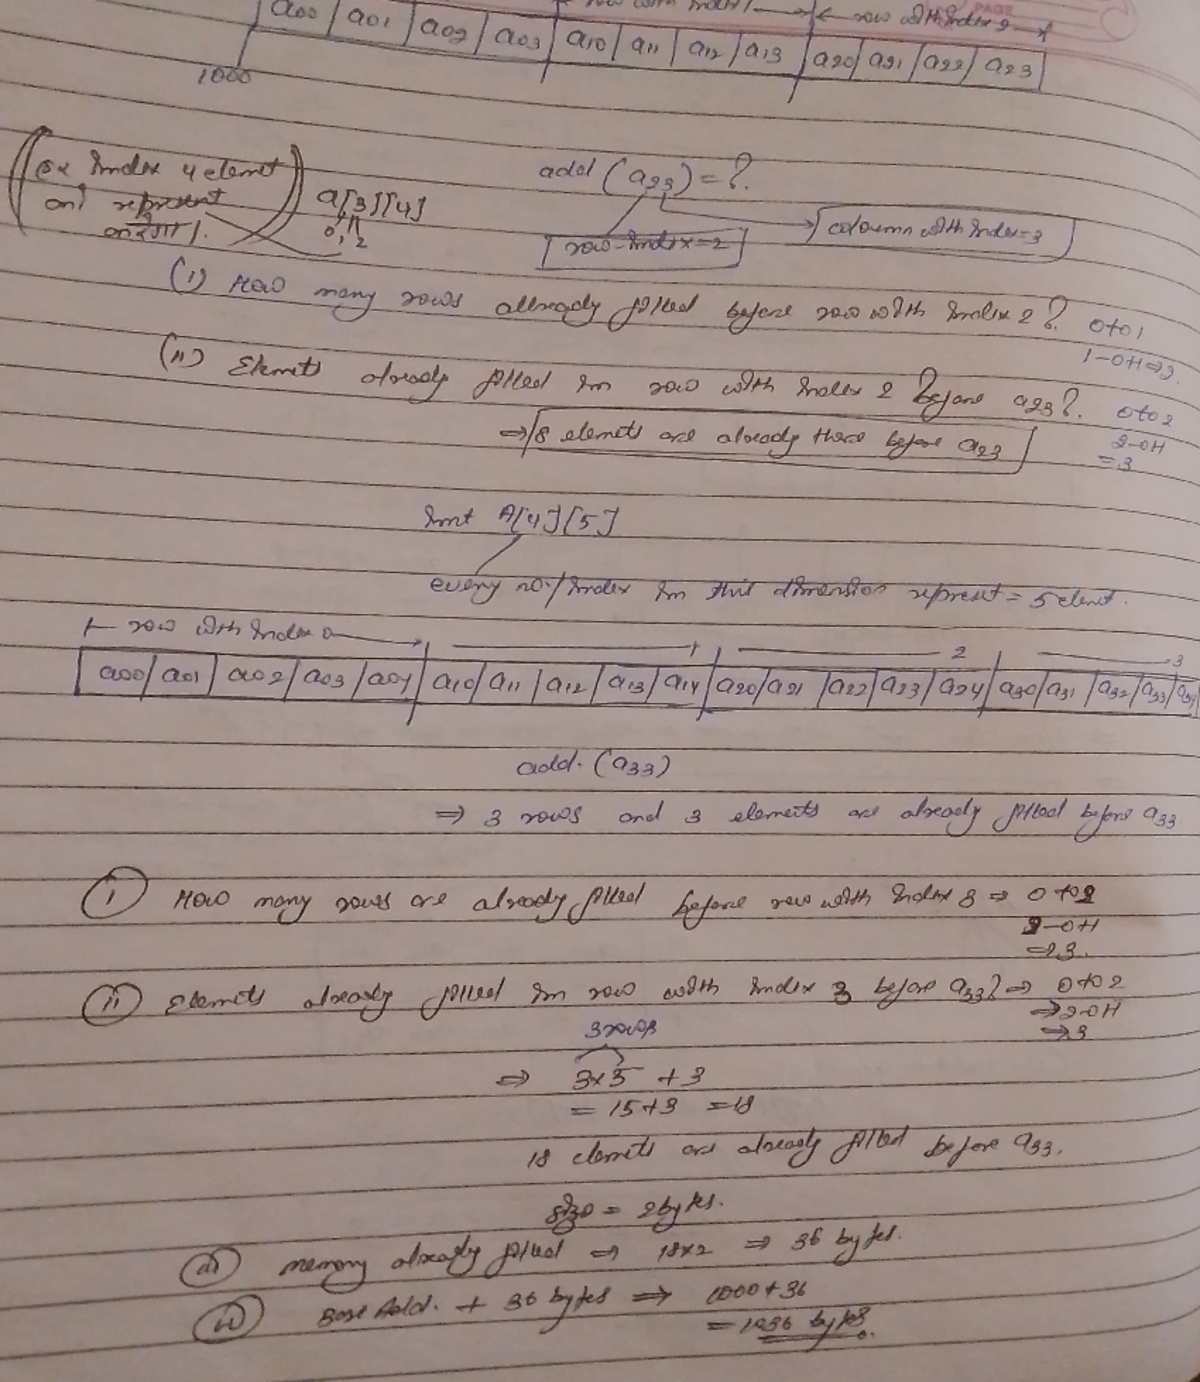 row with Index 1 → ← row with Index 2 →
a00 a01 a02 a03 a10 a11 a12 a13 a20 a21 a22 a23
1000
Index 4 elemet
represent
करेगा।
a[3][4]
0,1,2
add (a23) = ?
row-Index=2
coloumn with Index=3
(i) How many rows allready filled before row with Index 2? 0 to 1
1-0+1 ⇒ 2.
(ii) Elemets already filled in row with Index 2 before a23?. 0 to 2
2-0+1
= 3
⇒ 8 elemets are already there before a23
Int A[4][5]
every no./Index in this dimension represet = 5 elemt.
row with Index 0 → 1 2 3
a00 a01 a02 a03 a04 a10 a11 a12 a13 a14 a20 a21 a22 a23 a24 a30 a31 a32 a33 a34
add. (a33)
⇒ 3 rows and 3 elements are already filled before a33
(i) How many rows are already filled before row with Index 3 ⇒ 0 to 2
2-0+1
⇒ 3.
(ii) Elemets already filled in row with Index 3 before a33? ⇒ 0 to 2
⇒ 2-0+1
⇒ 3
3 rows
⇒ 3×5 + 3
= 15+3 = 18
18 elemets are already filled before a33.
size = 2 bytes.
(iii) memory already filled ⇒ 18×2 ⇒ 36 bytes.
(iv) Base Add. + 36 bytes ⇒ 1000+36
= 1036 bytes.